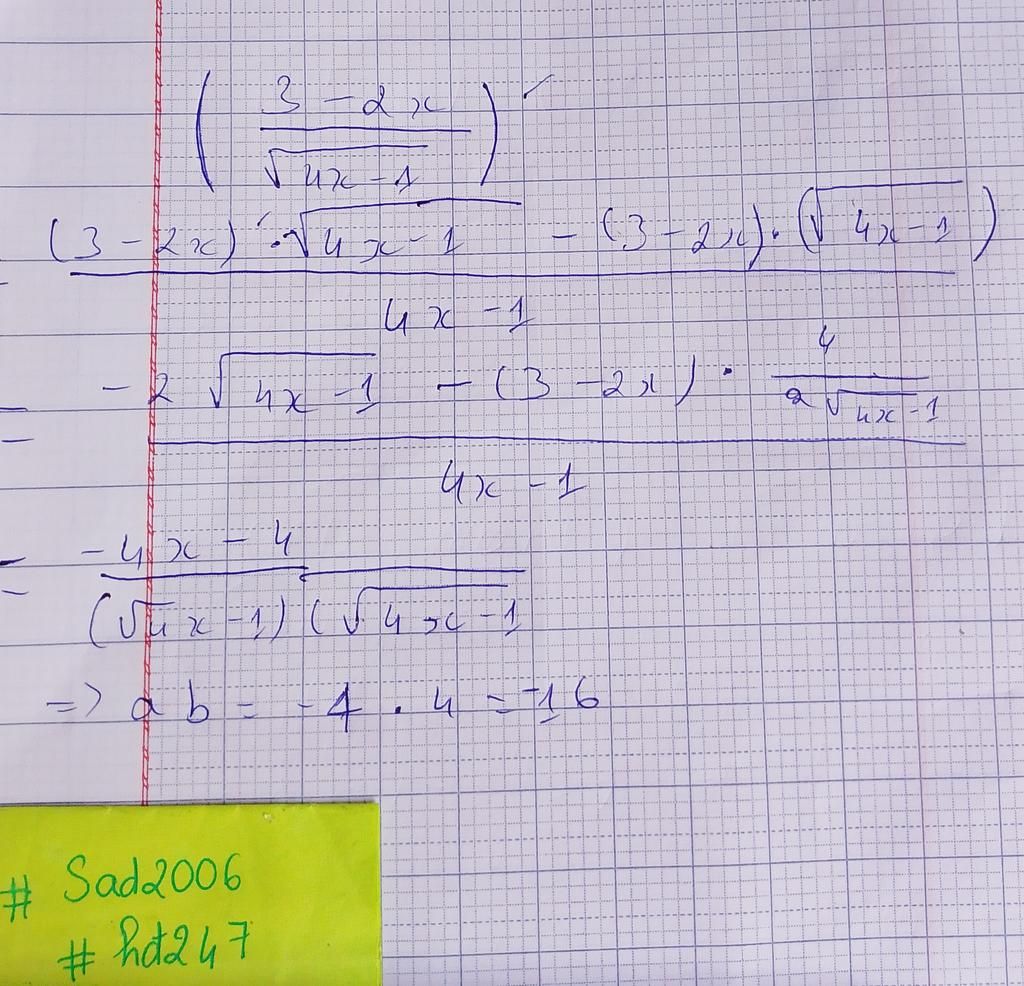 ( (3 - 2x) / √(4x-1) )'
((3 - 2x)' . √(4x-1) - (3 - 2x) . (√(4x-1))) / (4x - 1)
= (-2 √(4x-1) - (3 - 2x) . 4 / (2√(4x-1))) / (4x - 1)
= (-4x - 4) / ((√4x - 1) (√(4x-1))
=> ab = -4 . 4 = -16
# Sad2006
# hdt247